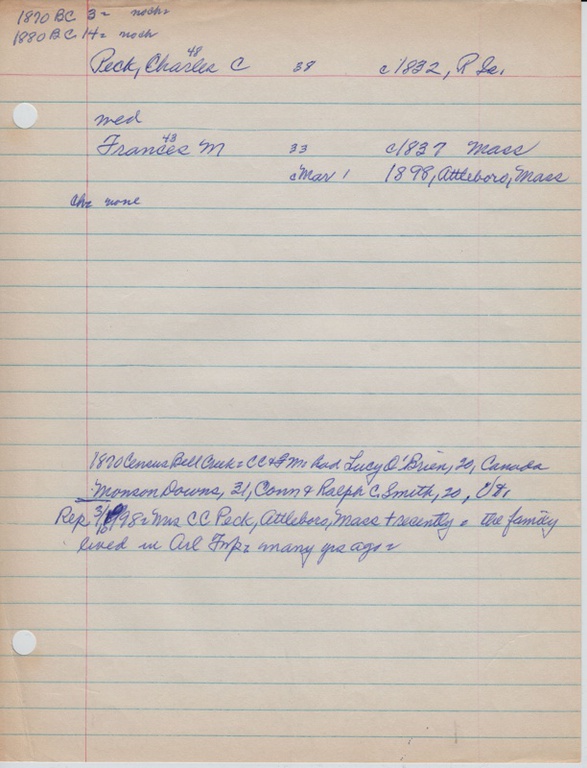 1870 BC 3 = no ch =
1880 BC 14 = no ch
48
Peck, Charles C 38 c1832, R Is.
med
43
Frances M 33 c1837 Mass
c Mar 1 1898, Attleboro, Mass
Ch = none
1870 Census Bell Creek = CC & F M had Lucy O'Brien, 20, Canada
Monson Downs, 31, Conn & Ralph C Smith, 20, Vt.
Rep 3/ /98 = Mrs CC Peck, Attleboro, Mass + recently = the family
lived in Arl Twp = many yrs ago =